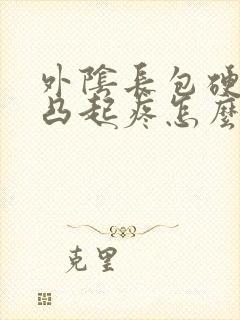 外陰長包硬
凸起疼怎麼
克里